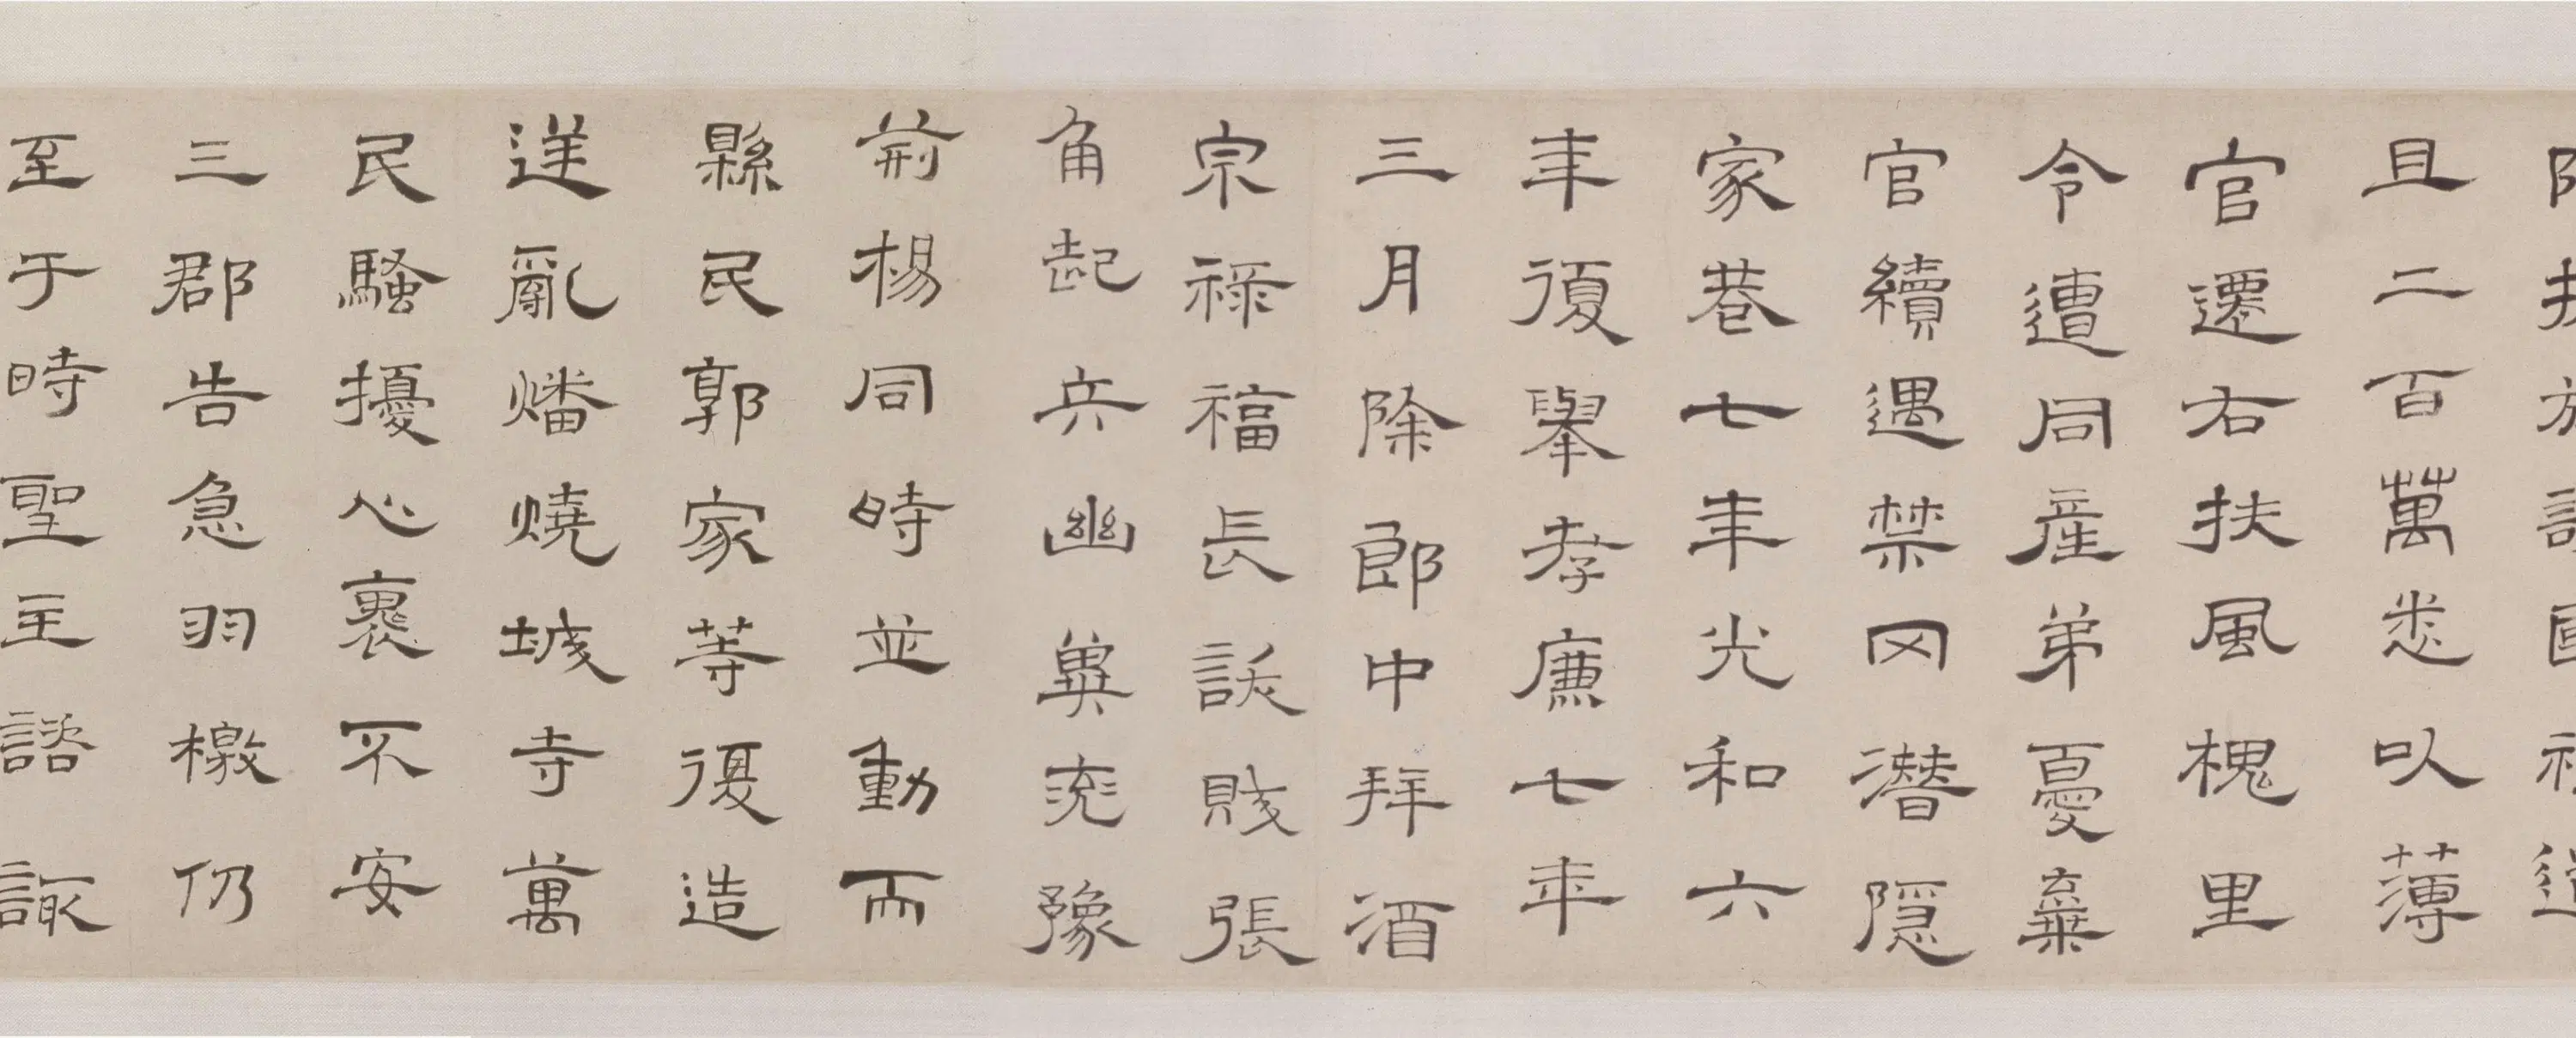 且二百萬悉以薄
官遷右扶風槐里
令遭同産弟憂棄
官續遇禁冈潛隱
家巷七年光和六
年復舉孝廉七年
三月除郎中拜酒
宗祿福長訞賊張
角起兵幽冀兗豫
荊楊同時並動而
縣民郭家等復造
逆亂燔燒城寺萬
民騷擾心裹不安
三郡告急羽檄仍
至于時聖主諮諏